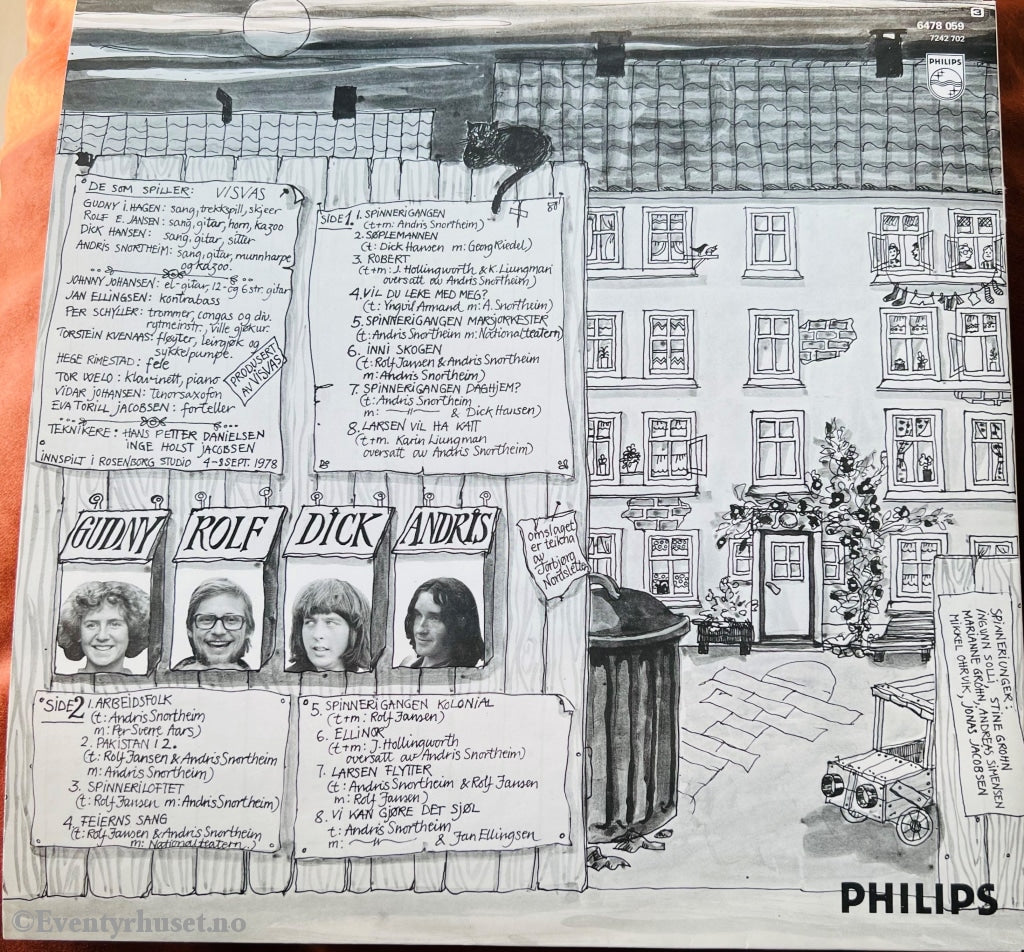 3
6478 059
7242 702
PHILIPS
DE SOM SPILLER: VISVAS
GUDNY I. HAGEN: sang, trekkspill, skjeer
ROLF E. JANSEN: sang, gitar, horn, kazoo
DICK HANSEN: sang, gitar, sitter
ANDRIS SNORTHEIM: sang, gitar, munnharpe
og kazoo.
JOHNNY JOHANSEN: el-gitar, 12- og 6 str. gitar
JAN ELLINGSEN: kontrabass
PER SCHYLLER: trommer, congas og div.
rytmeinstr., ville gjøkur.
TORSTEIN KVENAAS: fløyter, leirgjøk og
sykkelpumpe.
HEGE RIMESTAD: fele
TOR WELO: klarinett, piano
VIDAR JOHANSEN: tenorsaxofon
EVA TORILL JACOBSEN: forteller
TEKNIKERE: HANS PETTER DANIELSEN
INGE HOLST JACOBSEN
INNSPILT I ROSENBORG STUDIO 4-8 SEPT. 1978
PRODUSERT
AV VISVAS
SIDE 1
1. SPINNERIGANGEN
(t+m: Andris Snortheim)
2. SØPLEMANNEN
(t: Dick Hansen m: Georg Riedel)
3. ROBERT
(t+m: J. Hollingworth & K. Liungman
oversatt av Andris Snortheim)
4. VIL DU LEKE MED MEG?
(t: Yngvil Armand m: A. Snortheim)
5. SPINNERIGANGEN MARSJORKESTER
(t: Andris Snortheim m: Nationalteatern)
6. INNI SKOGEN
(t: Rolf Jansen & Andris Snortheim
m: Andris Snortheim)
7. SPINNERIGANGEN DAGHJEM?
(t: Andris Snortheim
m: —〃— & Dick Hansen)
8. LARSEN VIL HA KATT
(t+m. Karin Liungman
oversatt av Andris Snortheim)
GUDNY
ROLF
DICK
ANDRIS
omslaget
er teikna
av
Torbjørg
Nordsletta
SIDE 2
1. ARBEIDSFOLK
(t: Andris Snortheim
m: Per Sverre Aars)
2. PAKISTAN I 2.
(t: Rolf Jansen & Andris Snortheim
m: Andris Snortheim)
3. SPINNERILOFTET
(t: Rolf Jansen m: Andris Snortheim)
4. FEIERNS SANG
(t: Rolf Jansen & Andris Snortheim
m: Nationalteatern..)
5. SPINNERIGANGEN KOLONIAL
(t+m: Rolf Jansen)
6. ELLINOR
(t+m: J. Hollingworth
oversatt av Andris Snortheim)
7. LARSEN FLYTTER
(t: Andris Snortheim & Rolf Jansen
m: Rolf Jansen)
8. VI KAN GJØRE DET SJØL
t: Andris Snortheim
m: —〃— & Jan Ellingsen
SPINNERIUNGER:
INGUNN SOLLI, STINE GROHN
MARIANNE GRÖHN, ANDREAS SIMENSEN
MIKKEL OHRVIK, JONAS JACOBSEN
PHILIPS
©Eventyrhuset.no